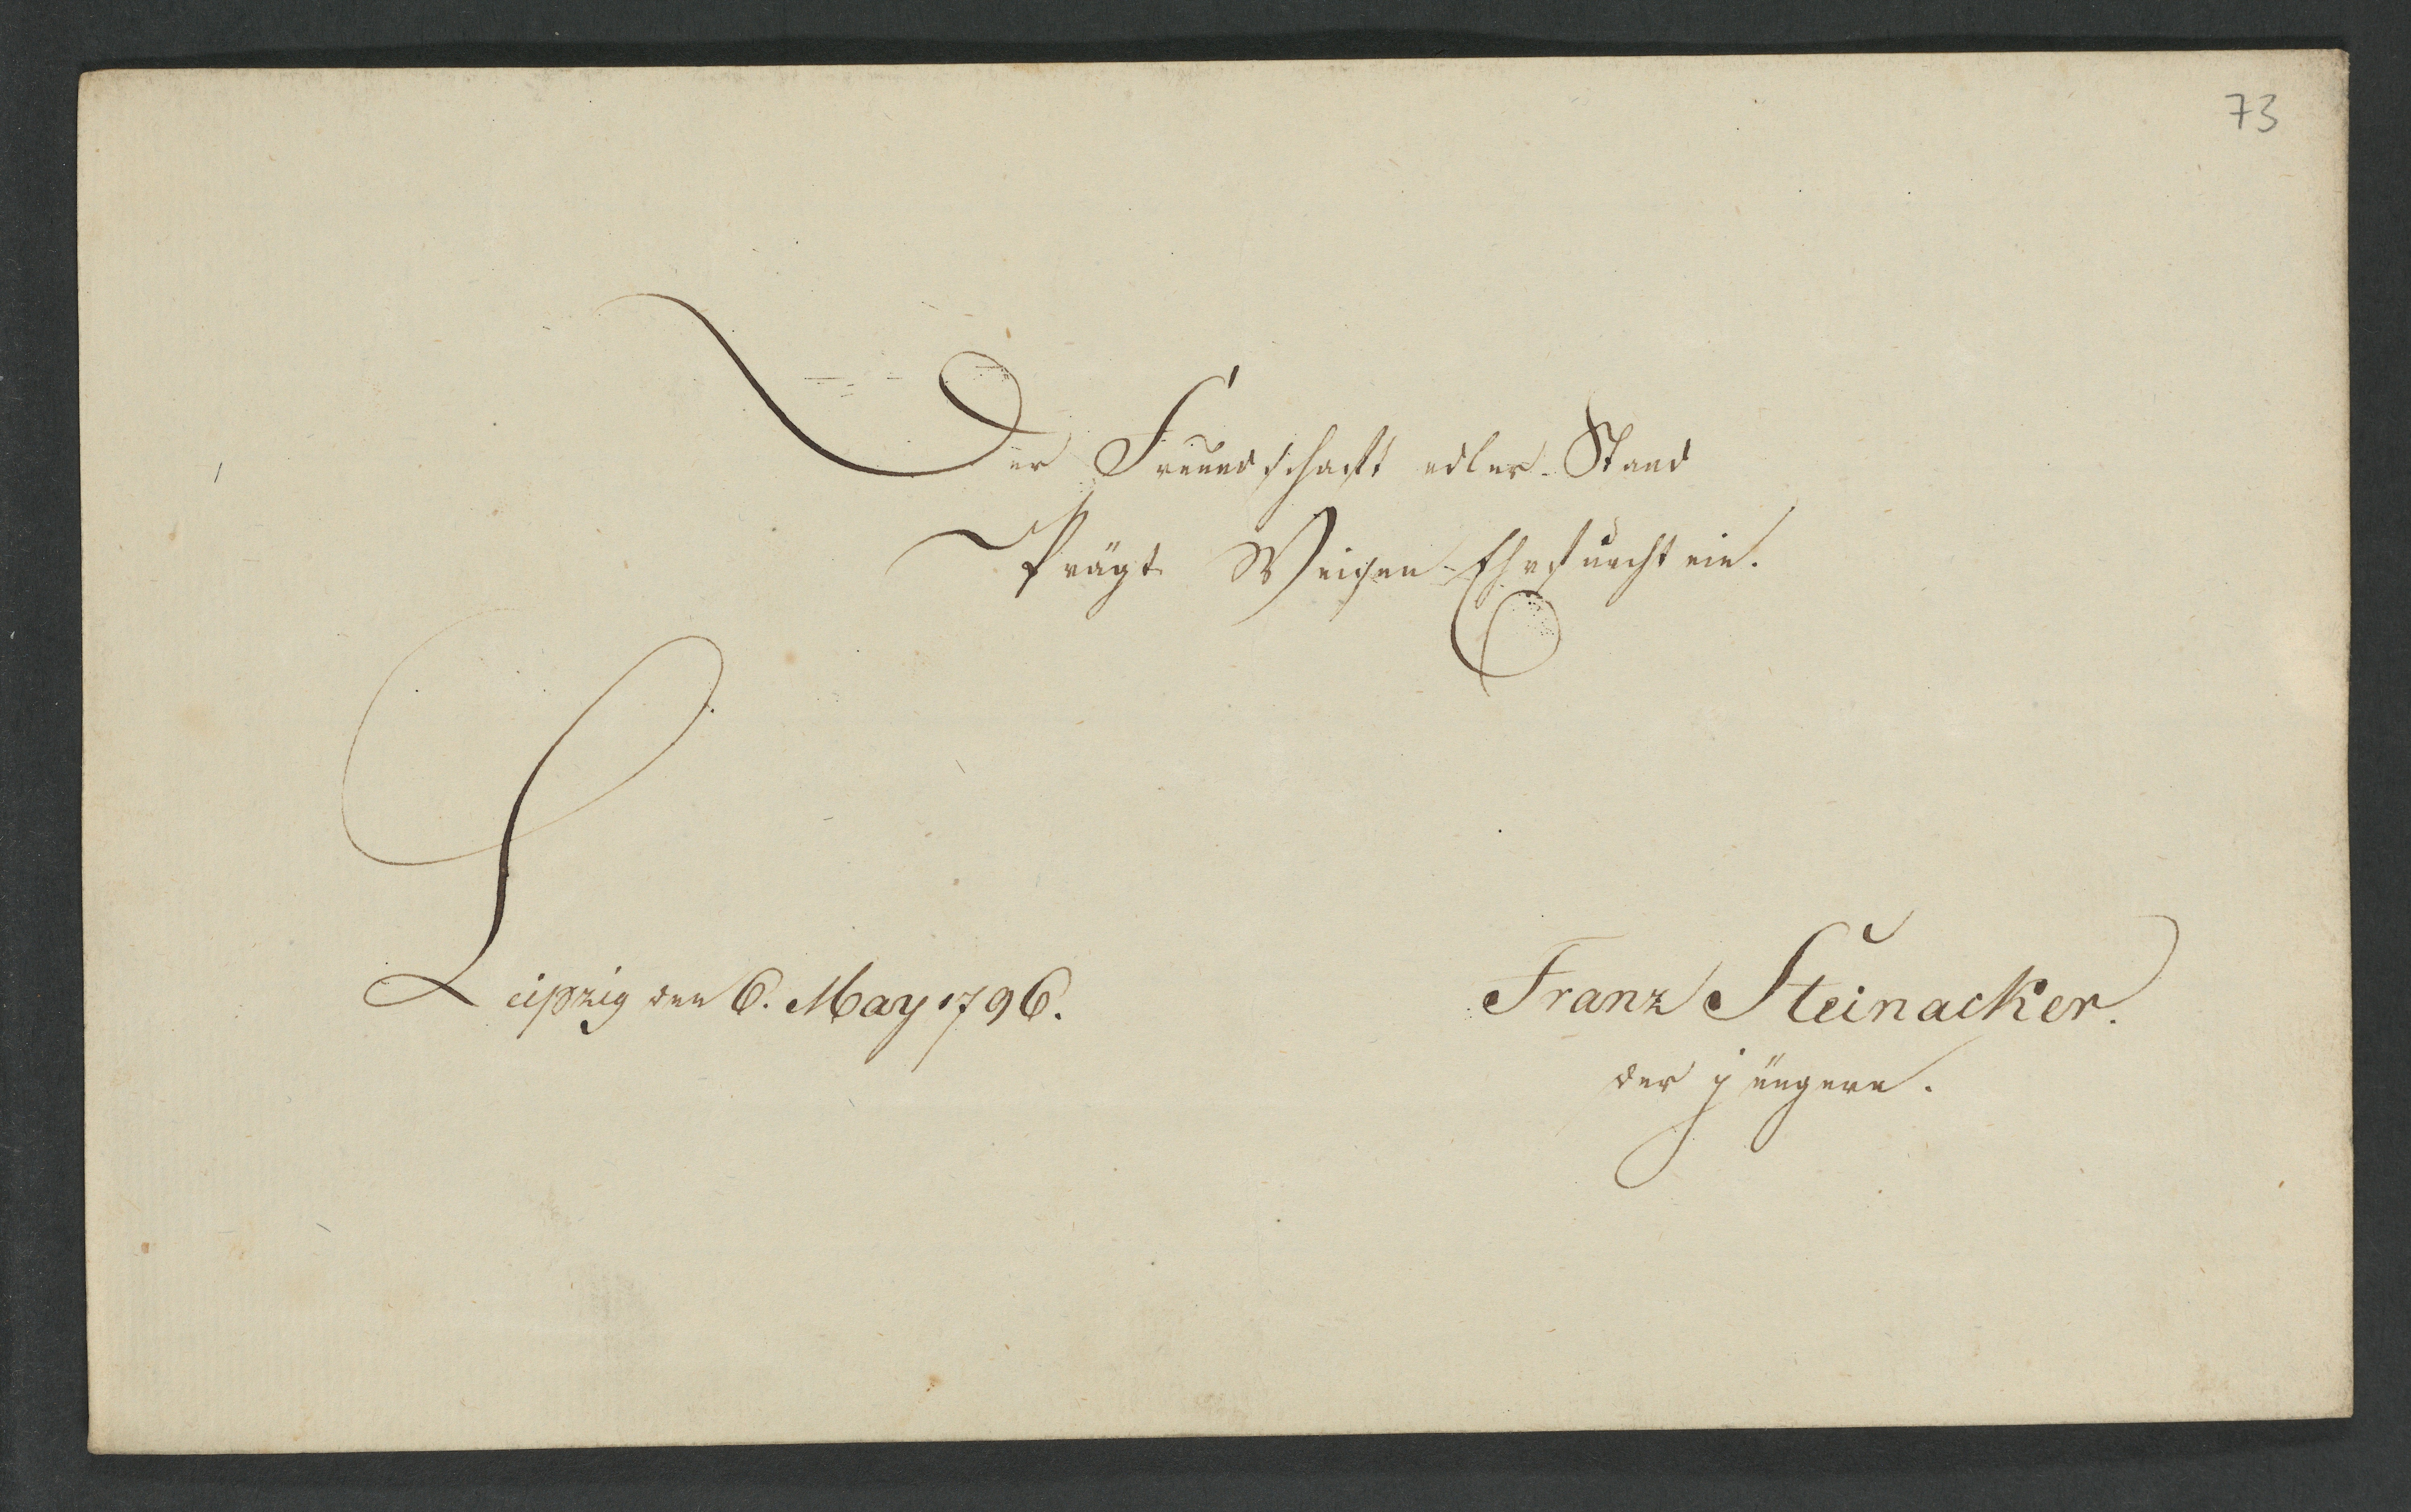 73
Der Freundschaft edler Stand
Prägt Weisen Ehrfurcht ein.
Leipzig den 6. May 1796.
Franz Steinacker.
der jüngere.